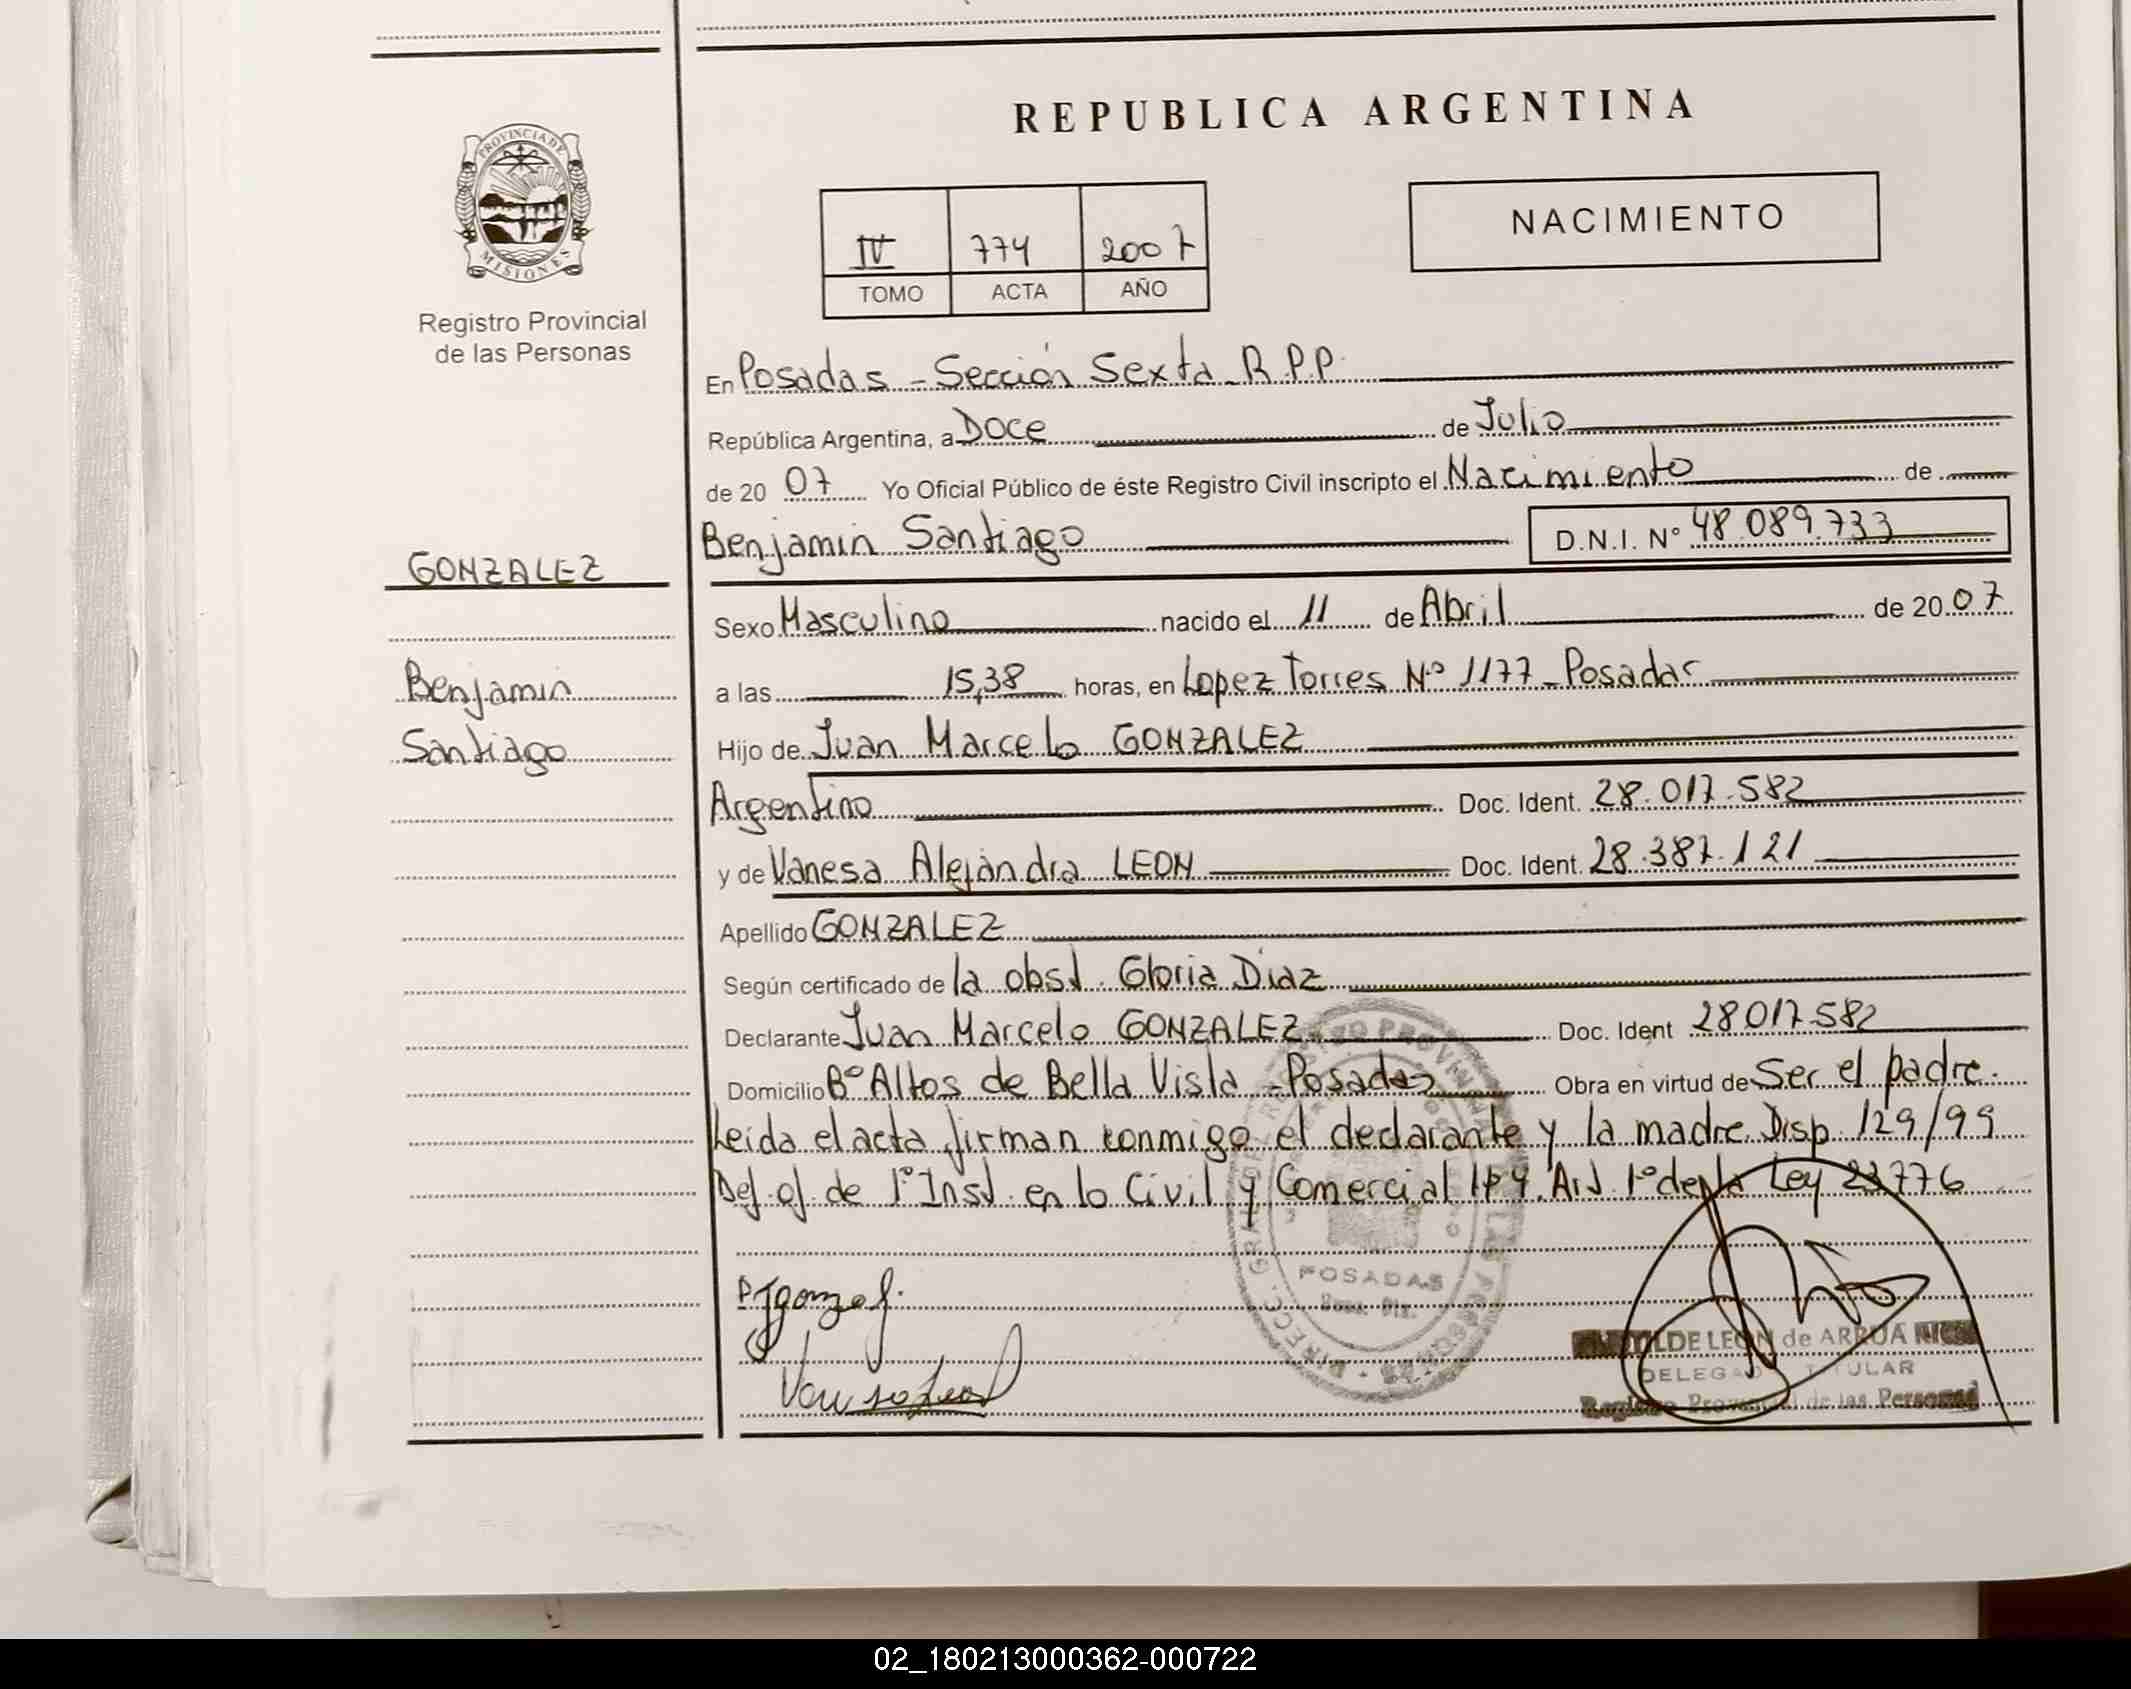 REPUBLICA ARGENTINA
PROVINCIA DE
MISIONES
Registro Provincial
de las Personas
IV 774 2007
TOMO ACTA AÑO
NACIMIENTO
En Posadas - Sección Sexta R.P.P.
República Argentina, a Doce de Julio
de 20 07 Yo Oficial Público de éste Registro Civil inscripto el Nacimiento de
GONZALEZ
Benjamin Santiago D.N.I. Nº 48.089.733
Sexo Masculino nacido el 11 de Abril de 20 07
Benjamin
a las 15,38 horas, en Lopez Torres Nº 1177 - Posadas
Santiago
Hijo de Juan Marcelo GONZALEZ
Argentino Doc. Ident. 28.017.582
y de Vanesa Alejandra LEON Doc. Ident. 28.387.121
Apellido GONZALEZ
Según certificado de la obst. Gloria Diaz
Declarante Juan Marcelo GONZALEZ Doc. Ident 28017582
Domicilio Bº Altos de Bella Vista - Posadas Obra en virtud de Ser el padre.
Leida el acta firman conmigo el declarante y la madre. Disp. 129/99
Def. of. de 1º Inst. en lo Civil y Comercial 1 Art. 1º de la Ley 23776
POSADAS
DE LEON de ARRUA
DELEGADA TITULAR
Registro Provincial de las Personas
02_180213000362-000722